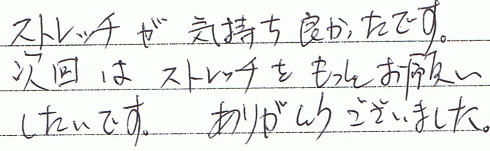 ストレッチが気持ち良かったです。
次回はストレッチをもっとお願い
したいです。 ありがとうございました。